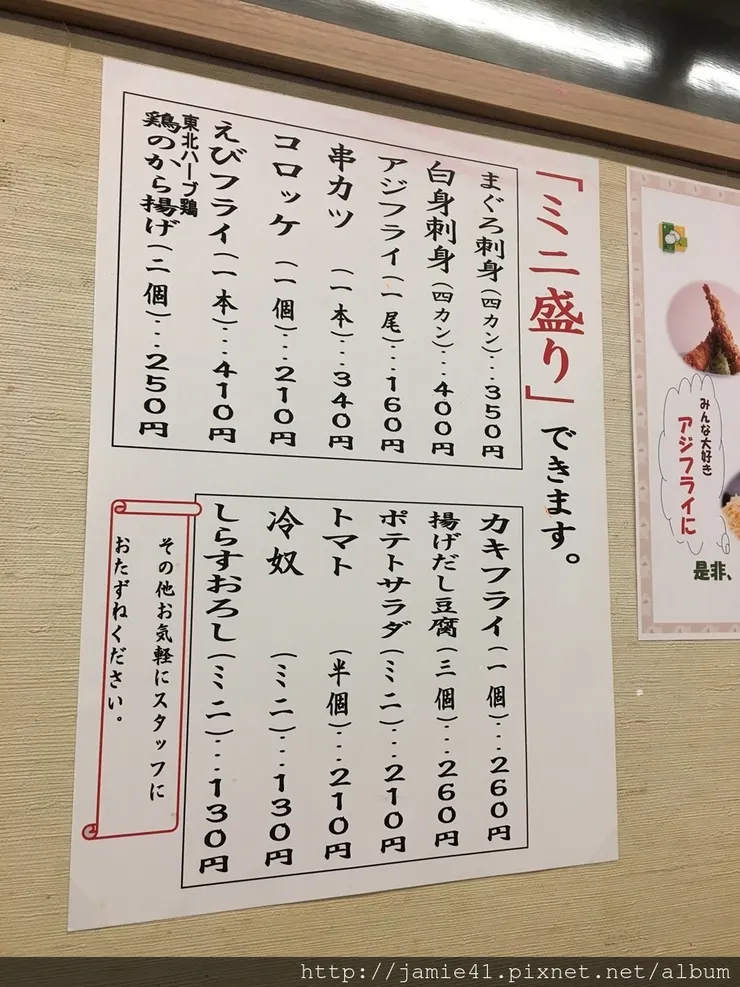 「ミニ盛り」できます。
まぐろ刺身(四カン)...350円
白身刺身(四カン)...400円
アジフライ(一尾)...160円
串カツ(一本)...340円
コロッケ(一個)...210円
えびフライ(一本)...410円
東北ハーブ鶏
鶏のから揚げ(二個)...250円
カキフライ(一個)...260円
揚げだし豆腐(三個)...260円
ポテトサラダ(ミニ)...210円
トマト(半個)...210円
冷奴(ミニ)...130円
しらすおろし(ミニ)...130円
その他お気軽にスタッフに
おたずねください。
みんな大好き
アジフライに
是非、
http://jamie41.pixnet.net/album